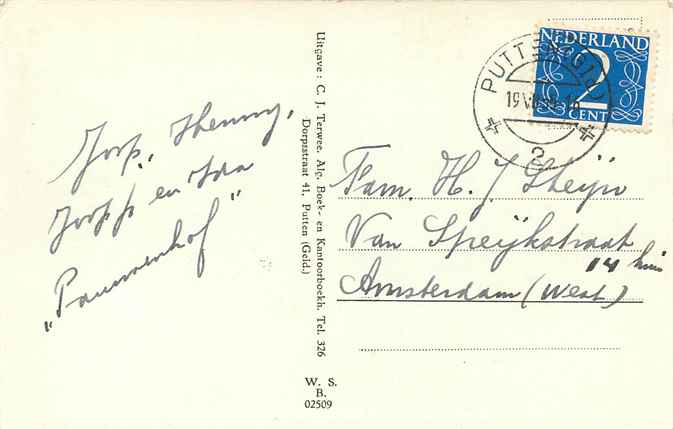 Joop, Henny,
Joop jr en Ida
"Pauwenhof"
Uitgave : C. J. Terwee. Alg. Boek- en Kantoorboekh. Tel. 326
Dorpsstraat 41, Putten (Geld.)
W. S.
B.
02509
NEDERLAND
2
CENT
PUTTEN (GLD)
19 VII
2
Fam. H. J Steijn
Van Speijkstraat
14 huis
Amsterdam (West)